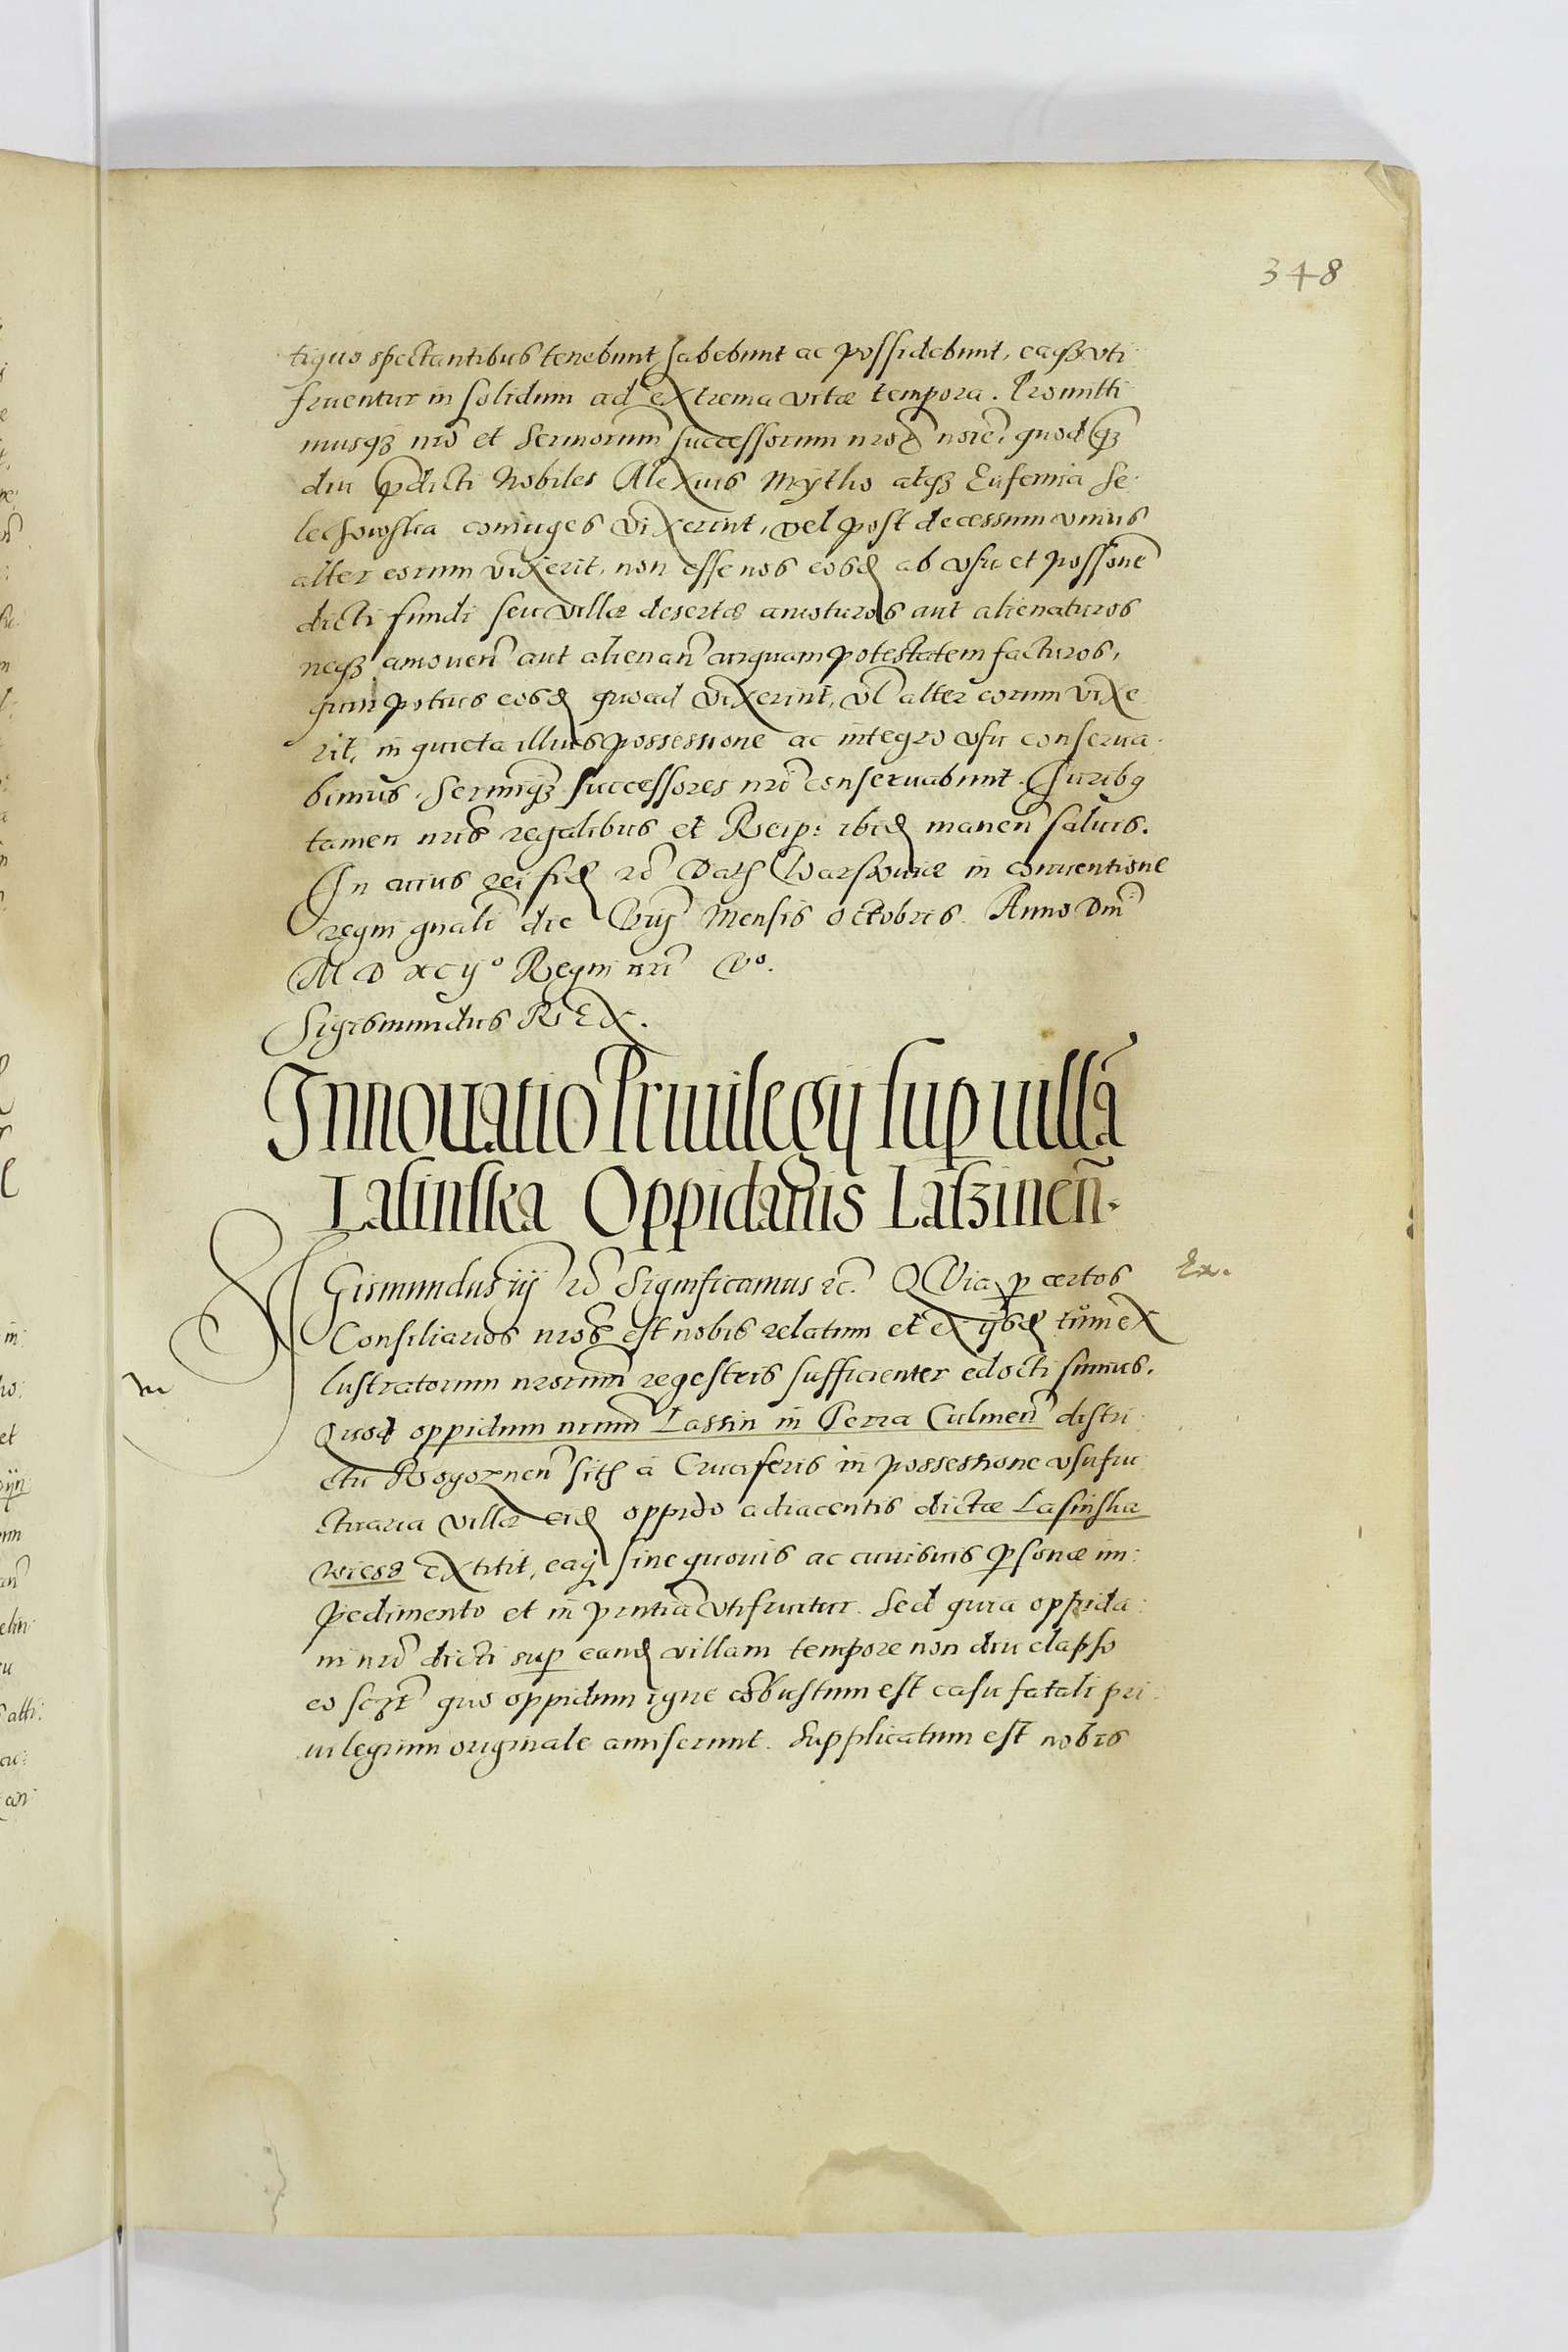 348
tiquo spectantibus tenebunt habebunt ac possidebunt, eaq3 vti
fruentur in solidum ad extrema vitæ tempora. Promitti
musq3 nrõ et Sermorum̃ successorum nroꝝ̃ noĩe, quod q̃3
diu p̃dicti Nobiles Alexius Mythо atq3 Eufemia Se
lechowska coniuges vixerint, vel post decessum vnius
alter eorum vixerit, non esse nos eosd ab vsu et possionẽ
dicti fundi seu villæ desertæ amoturos aut alienaturos
neq3 amouen̄ aut alienan̄ cuiquam potestatem facturos,
quin potius eosd quoad vixerint, vl̃ alter eorum vixe
rit, in quieta illius possessione ac integro vsu conserua
bimus, Sermiq̃3 successores nrĩ conseruabunt. Iuribꝰ
tamen nris̃ regalibus et Reip: ibid manen̄ saluis.
In cuius rei fid rc̃ Dath Warschouiæ in conuentione
regni gnali die Viij Mensis Octobris. Anno Dnĩ
M D xcijº Regni nri̅ Vº.
Sigismundus REX.
Innouatio Priuilegij sup villã
Lasinska Oppidanis Laszinen̄.
SIGismundus iij rc̃ Significamus rc̃. QVia p certos
Ex.
Consiliarios nros̃ est nobis relatum et ex ijsd tum ex
lustratorum nrorum̃ regestris sufficienter edocti sumus.
Quod oppidum nrum̃ Lassin in Terra Culmen̄ distri
ctu Rogoznen̄ sith à Cruciferis in possessione vsufru
ctuaria villæ eid oppido adiacentis dictæ Lasinska
wiess extitit, eaq sine quouis ac cuiusuis psonæ im:
pedimento et in pñtia vtifruitur. Sed quia oppida:
ni nrĩ dicti sup eand villam tempore non diu elapso
eo sczt̃ quo oppidum igne cõbustum est casu fatali pri
uilegium originale amiserunt. Supplicatum est nobis